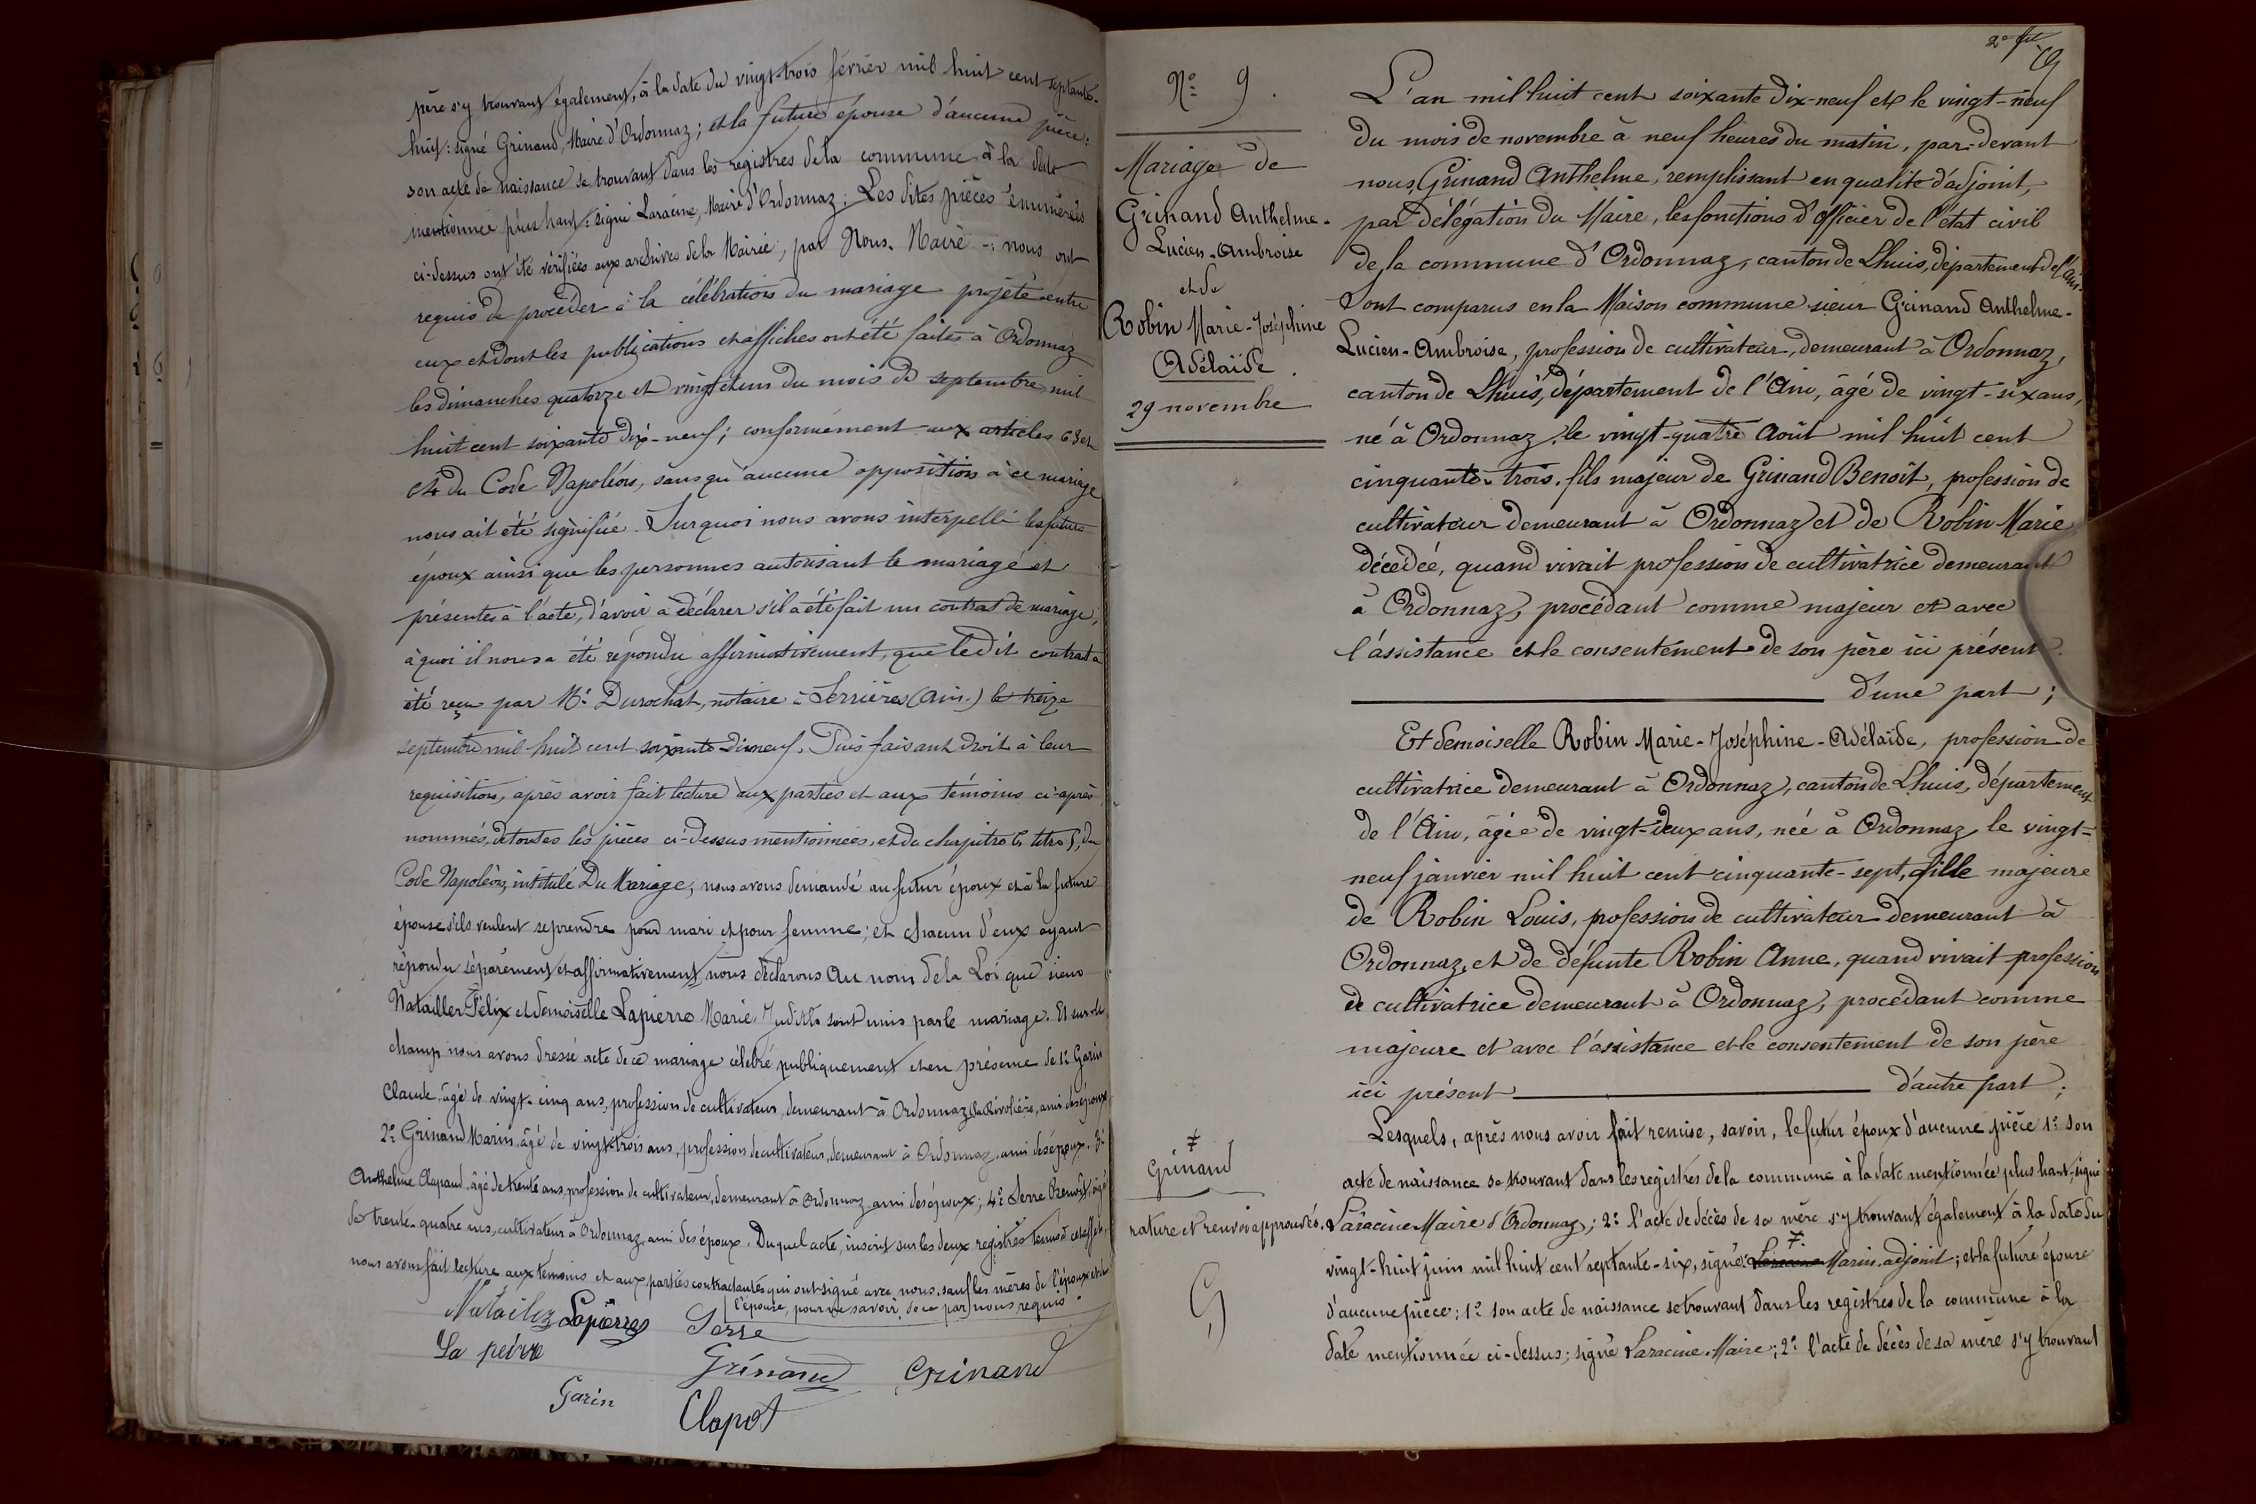 père s'y trouvant également, à la date du vingt-trois février mil huit cent septante-
huit: signé Grinand, Maire d'Ordonnaz; et la future épouse d'aucune pièce:
son acte de naissance se trouvant dans les registres de la commune à la date
mentionnée plus haut: signé Laracine, Maire d'Ordonnaz; Les dites pièces énumérées
ci-dessus ont été vérifiées aux archives de la Mairie, par Nous, Maire -; nous ont
requis de procéder à la célébration du mariage projeté entre
eux et dont les publications et affiches ont été faites à Ordonnaz
les dimanches quatorze et vingt et un du mois de septembre mil
huit cent soixante dix-neuf; conformément aux articles 63 et
64 du Code Napoléon, sans qu'aucune opposition à ce mariage
nous ait été signifiée. Sur quoi nous avons interpellé les futurs
époux ainsi que les personnes autorisant le mariage et
présentes à l'acte, d'avoir à déclarer s'il a été fait un contrat de mariage,
à quoi il nous a été répondu affirmativement, que ledit contrat a
été reçu par Me Durochat, notaire à Serrières (Ain.) le treize
septembre mil huit cent soixante dix neuf. Puis faisant droit à leur
requisition, après avoir fait lecture aux parties et aux témoins ci-après
nommés, de toutes les pièces ci-dessus mentionnées, et du chapitre 6, titre 5, du
Code Napoléon, intitulé Du Mariage, nous avons demandé au futur époux et à la future
épouse s'ils veulent se prendre pour mari et pour femme; et chacun d'eux ayant
répondu séparément et affirmativement, nous déclarons au nom de la Loi que sieur
Natailler Félix et demoiselle Lapierre Marie Judith sont unis par le mariage. Et sur-le
champ nous avons dressé acte de ce mariage célébré publiquement et en présence de 1º Garin
Claude, âgé de vingt-cinq ans, profession de cultivateur, demeurant à Ordonnaz, ami des époux
2º Grinand Marin, âgé de vingt-trois ans, profession de cultivateur, demeurant à Ordonnaz, ami des époux. 3º
Anthelme Clapaud, âgé de trente ans, profession de cultivateur, demeurant à Ordonnaz, ami des époux; 4º Serre Benoît, âgé
de trente-quatre ans, cultivateur à Ordonnaz, ami des époux. Du quel acte, inscrit sur les deux registres tenus à cet effet,
nous avons fait lecture aux témoins et aux parties contractantes qui ont signé avec nous, sauf les mères de l'époux et de
l'épouse, pour ne savoir, de ce par nous requis.
Lapierre Serre
La peirre
Grinand Grinand
Garin
Clapot
19
Nº 9.
Mariage de
Grinand Anthelme-
Lucien-Ambroise
et de
Robin Marie-Joséphine
Adélaïde.
29 novembre
L'an mil huit cent soixante dix-neuf et le vingt-neuf
du mois de novembre à neuf heures du matin, par-devant
nous, Grinand Anthelme, remplissant en qualité d'adjoint,
par délégation du Maire, les fonctions d'Officier de l'état civil
de la commune d'Ordonnaz, canton de Lhuis, département de l'Ain.
Sont comparus en la Maison commune sieur Grinand Anthelme-
Lucien-Ambroise, profession de cultivateur, demeurant à Ordonnaz,
canton de Lhuis, département de l'Ain, âgé de vingt-six ans,
né à Ordonnaz le vingt-quatre août mil huit cent
cinquante-trois, fils majeur de Grinand Benoît, profession de
cultivateur demeurant à Ordonnaz et de Robin Marie
décédée, quand vivait profession de cultivatrice demeurant
à Ordonnaz, procédant comme majeur et avec
l'assistance et le consentement de son père ici présent.
d'une part;
Et demoiselle Robin Marie-Joséphine-Adélaïde, profession de
cultivatrice demeurant à Ordonnaz, canton de Lhuis, département
de l'Ain, âgée de vingt-deux ans, née à Ordonnaz le vingt-
neuf janvier mil huit cent cinquante-sept, fille majeure
de Robin Louis, profession de cultivateur demeurant à
Ordonnaz, et de défunte Robin Anne, quand vivait profession
de cultivatrice demeurant à Ordonnaz, procédant comme
majeure et avec l'assistance et le consentement de son père
ici présent d'autre part;
Lesquels, après nous avoir fait remise, savoir, le futur époux d'aucune pièce 1º son
acte de naissance se trouvant dans les registres de la commune à la date mentionnée plus haut, signé
Laracine Maire d'Ordonnaz; 2º l'acte de décès de sa mère s'y trouvant également à la date du
vingt-huit juin mil huit cent septante-six, signé: Laracine Marin, adjoint; et la future épouse
d'aucune pièce; 1º son acte de naissance se trouvant dans les registres de la commune à la
date mentionnée ci-dessus; signé Laracine Maire; 2º l'acte de décès de sa mère s'y trouvant
≠
Grinand
rature et renvoi approuvés.
G